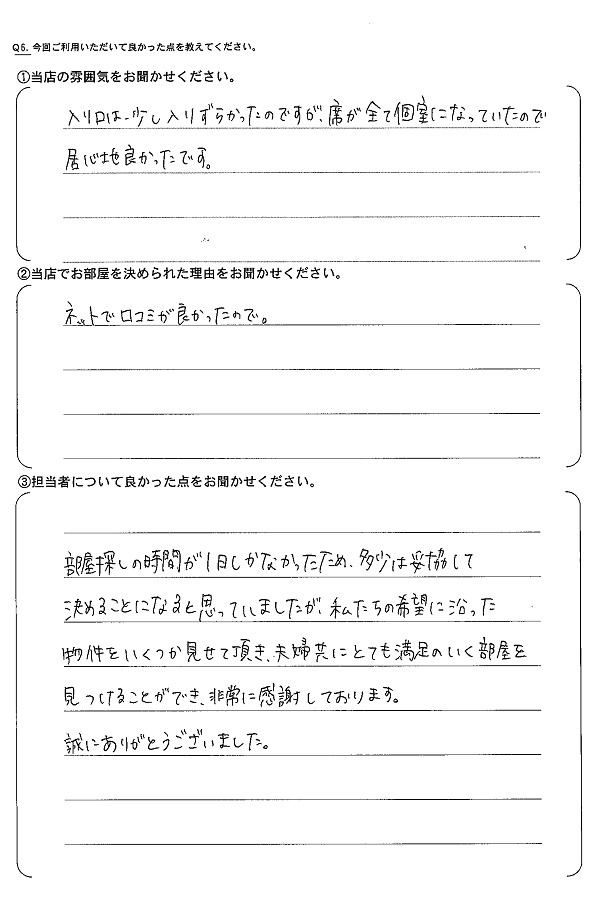 Q6. 今回ご利用いただいて良かった点を教えてください。
①当店の雰囲気をお聞かせください。
入り口は、少し入りずらかったのですが、席が全て個室になっていたので
居心地良かったです。
②当店でお部屋を決められた理由をお聞かせください。
ネットで口コミが良かったので。
③担当者について良かった点をお聞かせください。
部屋探しの時間が1日しかなかったため、多少は妥協して
決めることになると思っていましたが、私たちの希望に沿った
物件をいくつか見せて頂き、夫婦共にとても満足のいく部屋を
見つけることができ、非常に感謝しております。
誠にありがとうございました。